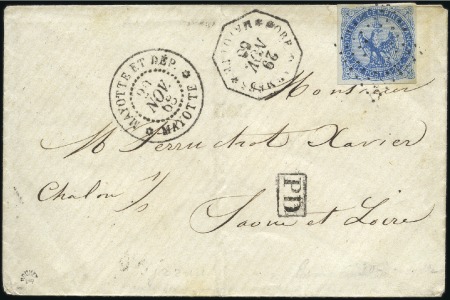 MAYOTTE ET DÉP.
NOV
65
MAYOTTE
29
NOV
65
MAYOTTE
Monsieur
M. Perruchot Xavier
Chalon s/s
PD
Saone et Loire